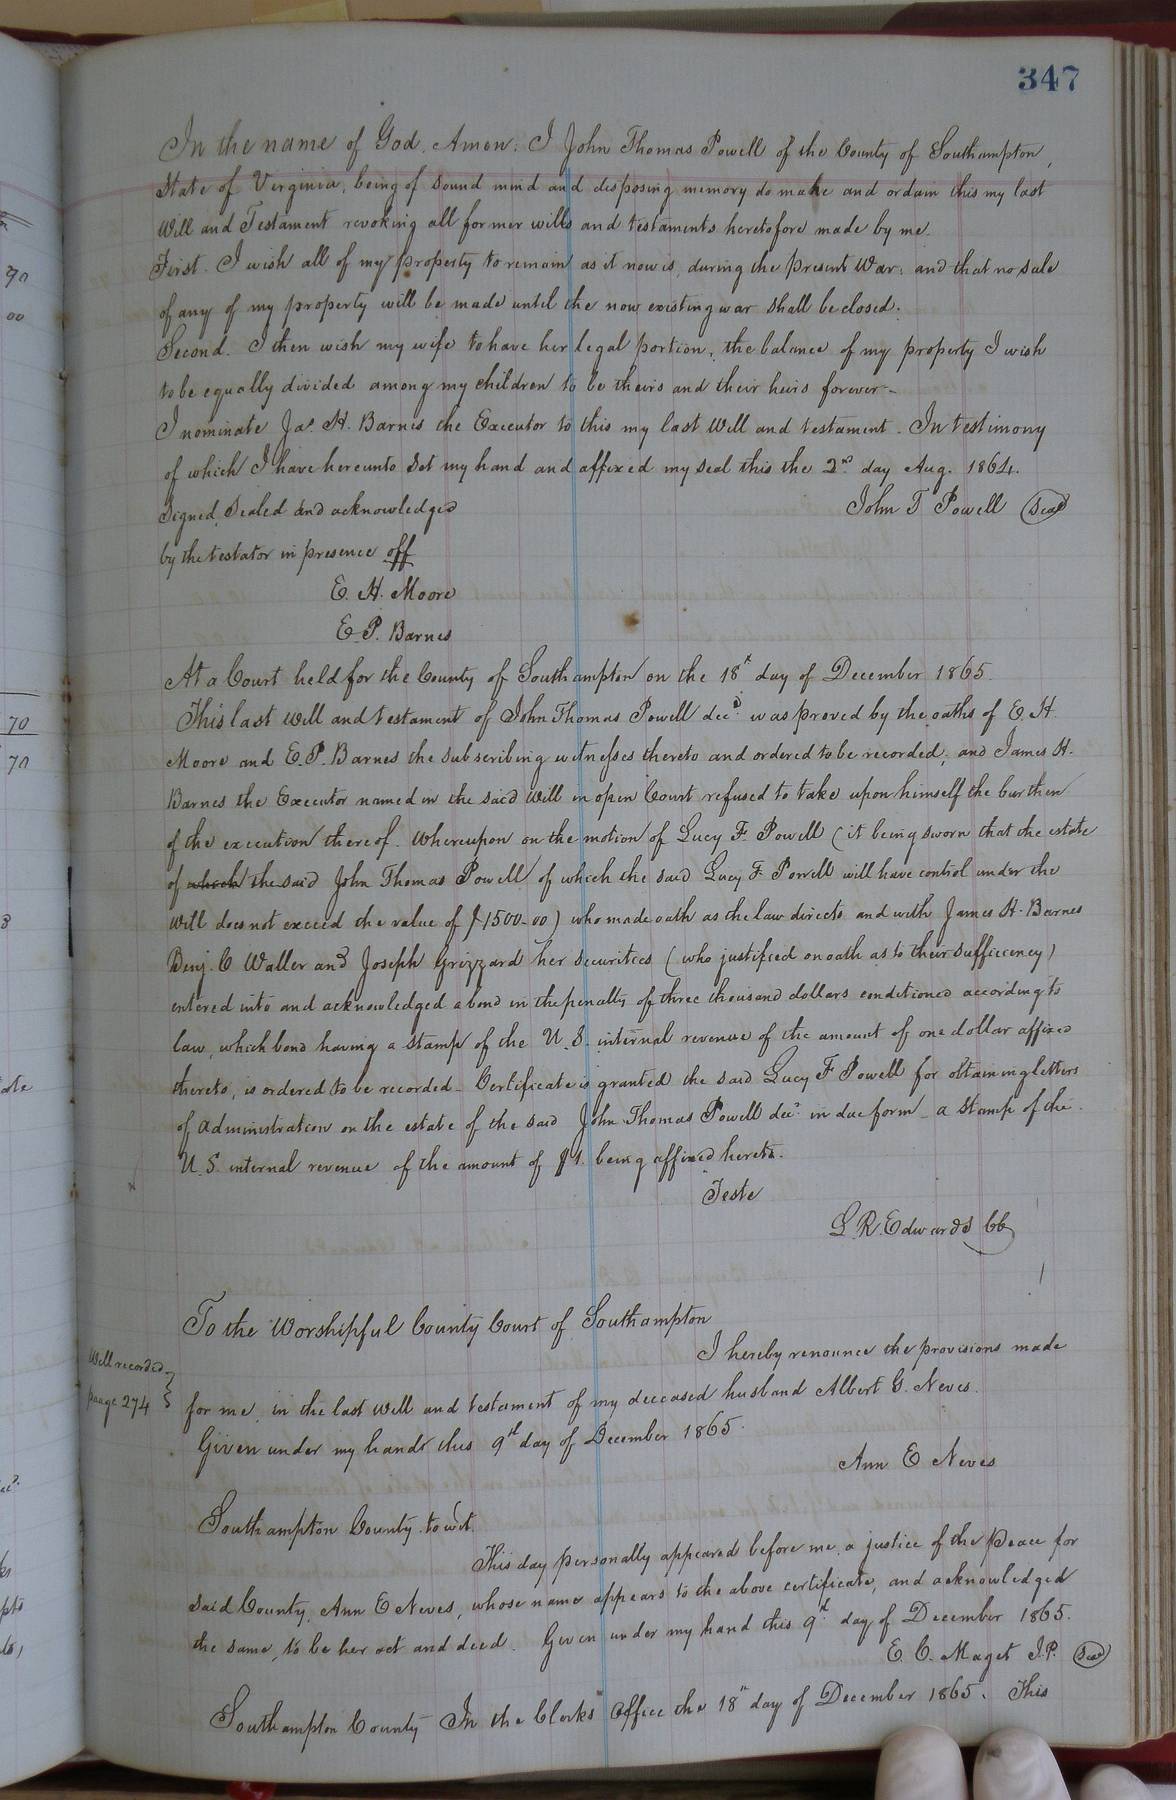 347
In the name of God. Amen. I John Thomas Powell of the County of Southampton,
State of Virginia, being of sound mind and disposing memory do make and ordain this my last
Will and Testament revoking all former wills and testaments heretofore made by me.
First. I wish all of my property to remain as it now is, during the present War: and that no sale
of any of my property will be made until the now existing war shall be closed.
Second. I then wish my wife to have her legal portion, the balance of my property I wish
to be equally divided among my children to be theirs and their heirs forever-
I nominate Jas. H. Barnes the Executor to this my last Will and testament. In testimony
of which I have hereunto set my hand and affixed my seal this the 2nd day Aug. 1864.
Signed, Sealed and acknowledged
John T Powell (Seal)
by the testator in presence off
E. H. Moore
E. P. Barnes
At a Court held for the County of Southampton on the 18th day of December 1865.
This last Will and testament of John Thomas Powell decd. was proved by the oaths of E. H.
Moore and E. P. Barnes the subscribing witnesses thereto and ordered to be recorded, and James H.
Barnes the Executor named in the said Will in open Court refused to take upon himself the burthen
of the execution thereof. Whereupon on the motion of Lucy F. Powell (it being sworn that the estate
of which the said John Thomas Powell of which the said Lucy F. Powell will have control under the
Will does not exceed the value of $1500-00) who made oath as the law directs and with James H. Barnes
Benj. C Waller and Joseph Grizzard her securities (who justified on oath as to their sufficiency)
entered into and acknowledged a bond in the penalty of three thousand dollars conditioned according to
law, which bond having a stamp of the U. S. internal revenue of the amount of one dollar affixed
thereto, is ordered to be recorded- Certificate is granted the said Lucy F Powell for obtaining letters
of Administration on the estate of the said John Thomas Powell decd. in due form- a stamp of the
U. S. internal revenue of the amount of $1. being affixed hereto.
Teste
L. R. Edwards CC
To the Worshipful County Court of Southampton
I hereby renounce the provisions made
Will recorded
paage 274
for me, in the last Will and testament of my deceased husband Albert G. Neves.
Given under my hand this 9th day of December 1865.
Ann E Neves
Southampton County. towit.
This day personally appeared before me, a justice of the Peace for
said County, Ann E Neves, whose name appears to the above certificate, and acknowledged
the same, to be her act and deed. Given under my hand this 9th day of December 1865.
E. C. Maget J.P. (Seal)
Southampton County In the Clerks Office the 18th day of December 1865. This